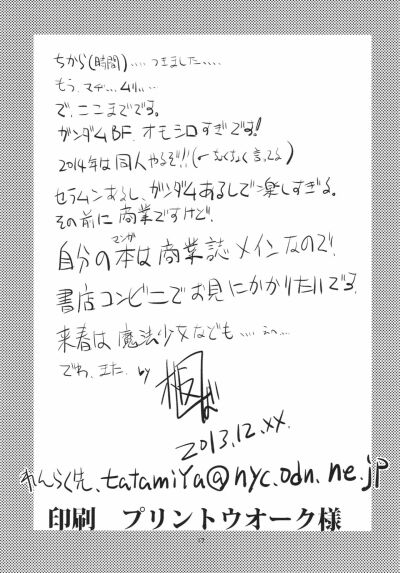 ちから(時間)‥‥つきました‥‥
もう、マヂ‥‥ムリ‥‥
で、ここまでです。
ガンダムBF、オモシロすぎです!
2014年は同人やるぞ!!(←なくなく言ってる)
セラムンあるし、ガンダムあるしで楽しすぎる。
その前に商業ですけど。
マンガ
自分の本は商業誌メインなので
書店コンビニでお見にかかりたいです。
来春は魔法少女なども‥‥
でわ、また by 板ば
2013.12.XX.
れんらく先、tatamiYa@nyc.odn.ne.jp
印刷 プリントウオーク様